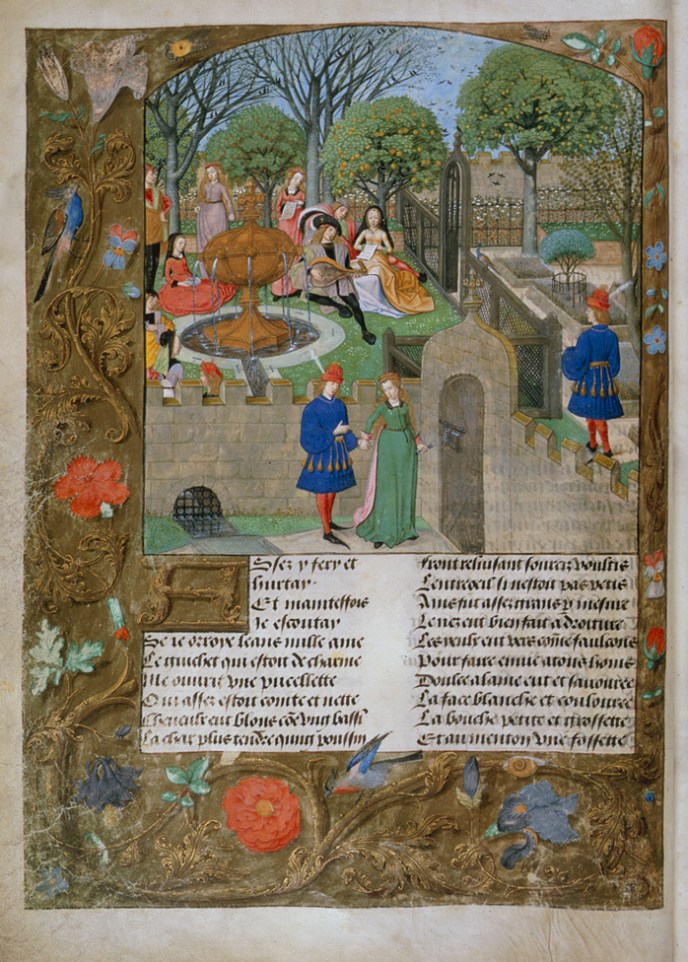 Assez y fery et
hurtay
Et maintesfois
Je escoutay
Se ie orroye leans nulle ame
Le guichet qui estoit de charme
Me ouurit vne pucellette
Qui assez estoit cointe et nette
Cheueulx eut blons cõe vng bassĩ
La char plus tendre qung poussin
Front reluisant sourcez voultis
Lentreoeil si nestoit pas petis
Ains fut assez grans p mesure
Le nez eut bien fait a droiture
Les yeulx eut vers cõme faulcons
Pour faire enuie atous homs
Doulce alaine eut et sauouree
La face blanche et coulouree
La bouche petite et grossette
Et au menton vne fossette